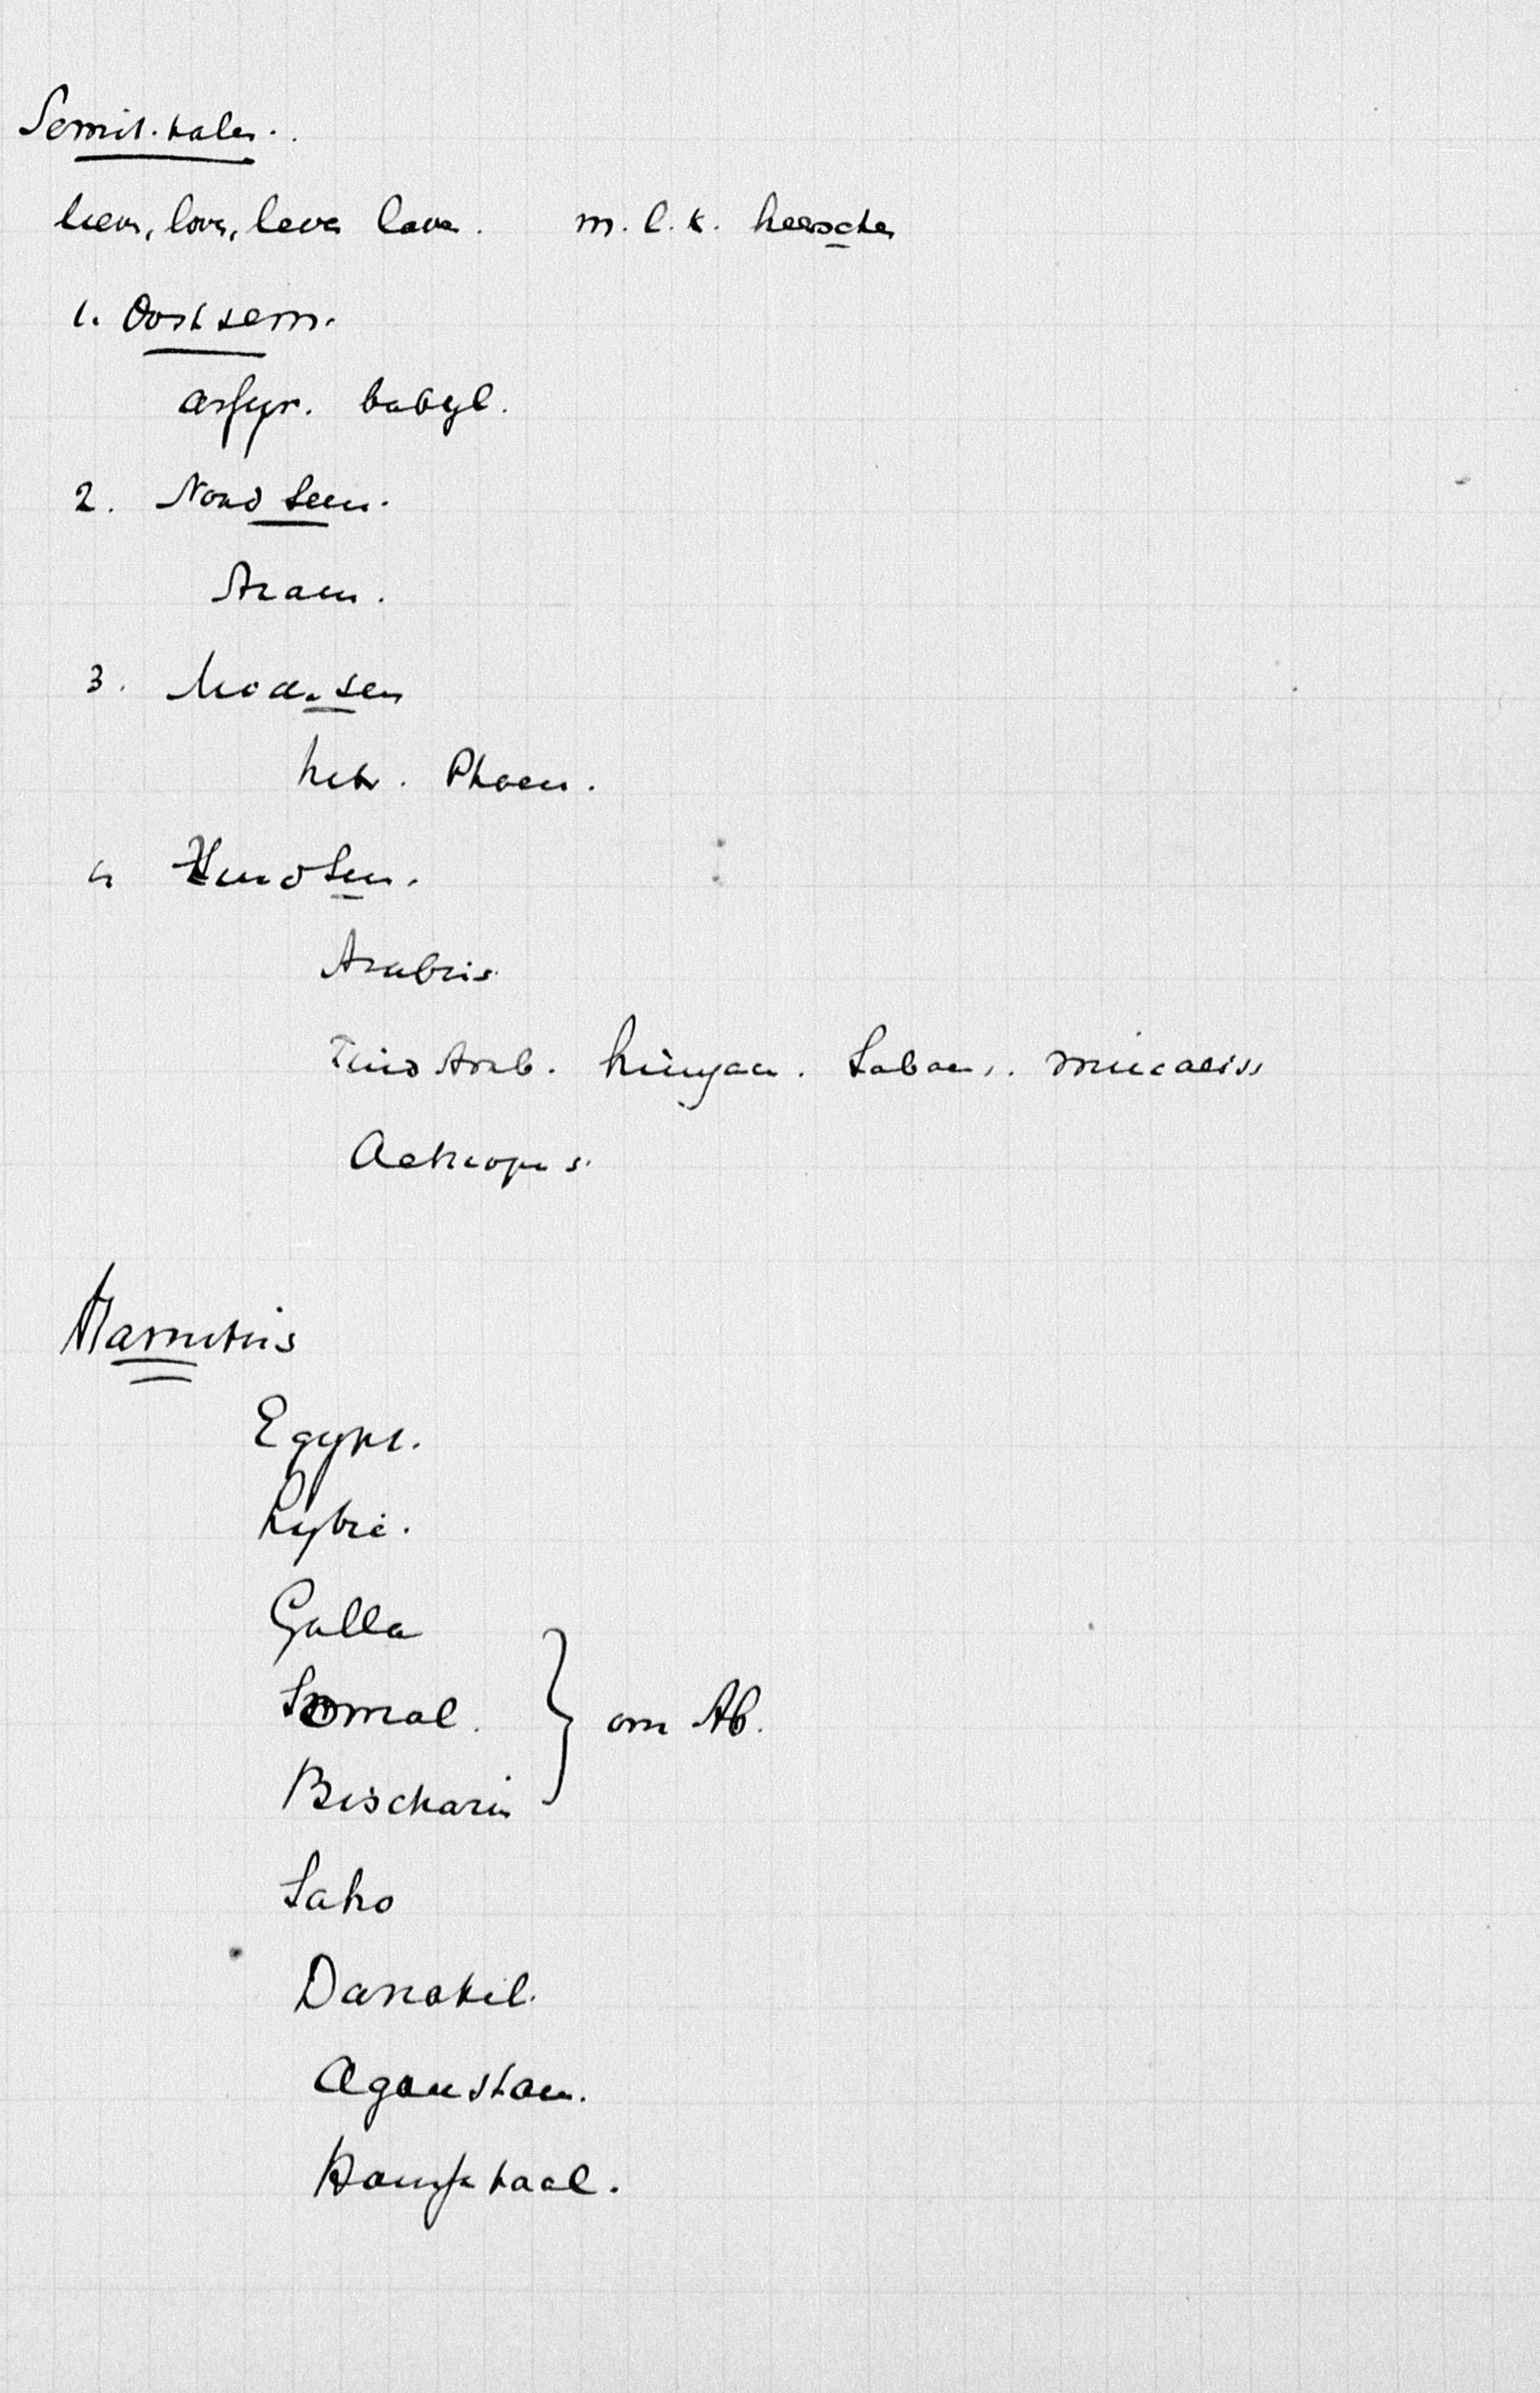 Semit. talen.
lieven, loven, leven laven. m.l.k. heerschen
1. Oostsem.
assyr. babyl.
2. Noord Sem.
Aram.
3. Midd. sem
hebr. Phoen.
4 Zuid Sem.
Arabies
Zuid Arab. himyar. Sabae. minaeiss
Aethiopies
Hamities
Egypt.
Lybie.
Galla
Somal.
Bischarin
om Ab.
Saho
Danakil.
taal.